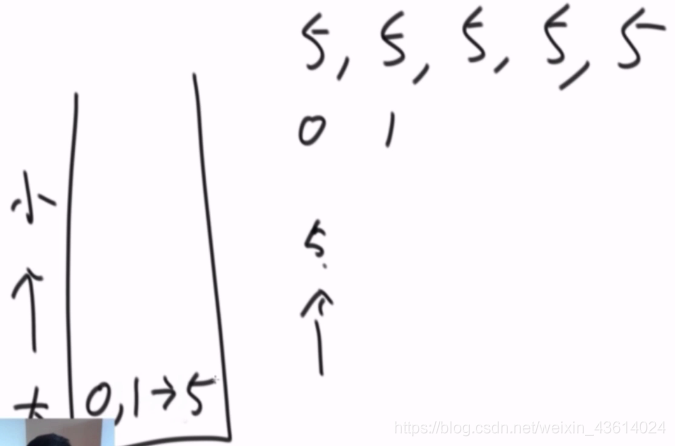 5, 5, 5, 5, 5
0 1
小
5
↑
↑
0,1→5
https://blog.csdn.net/weixin_43614024